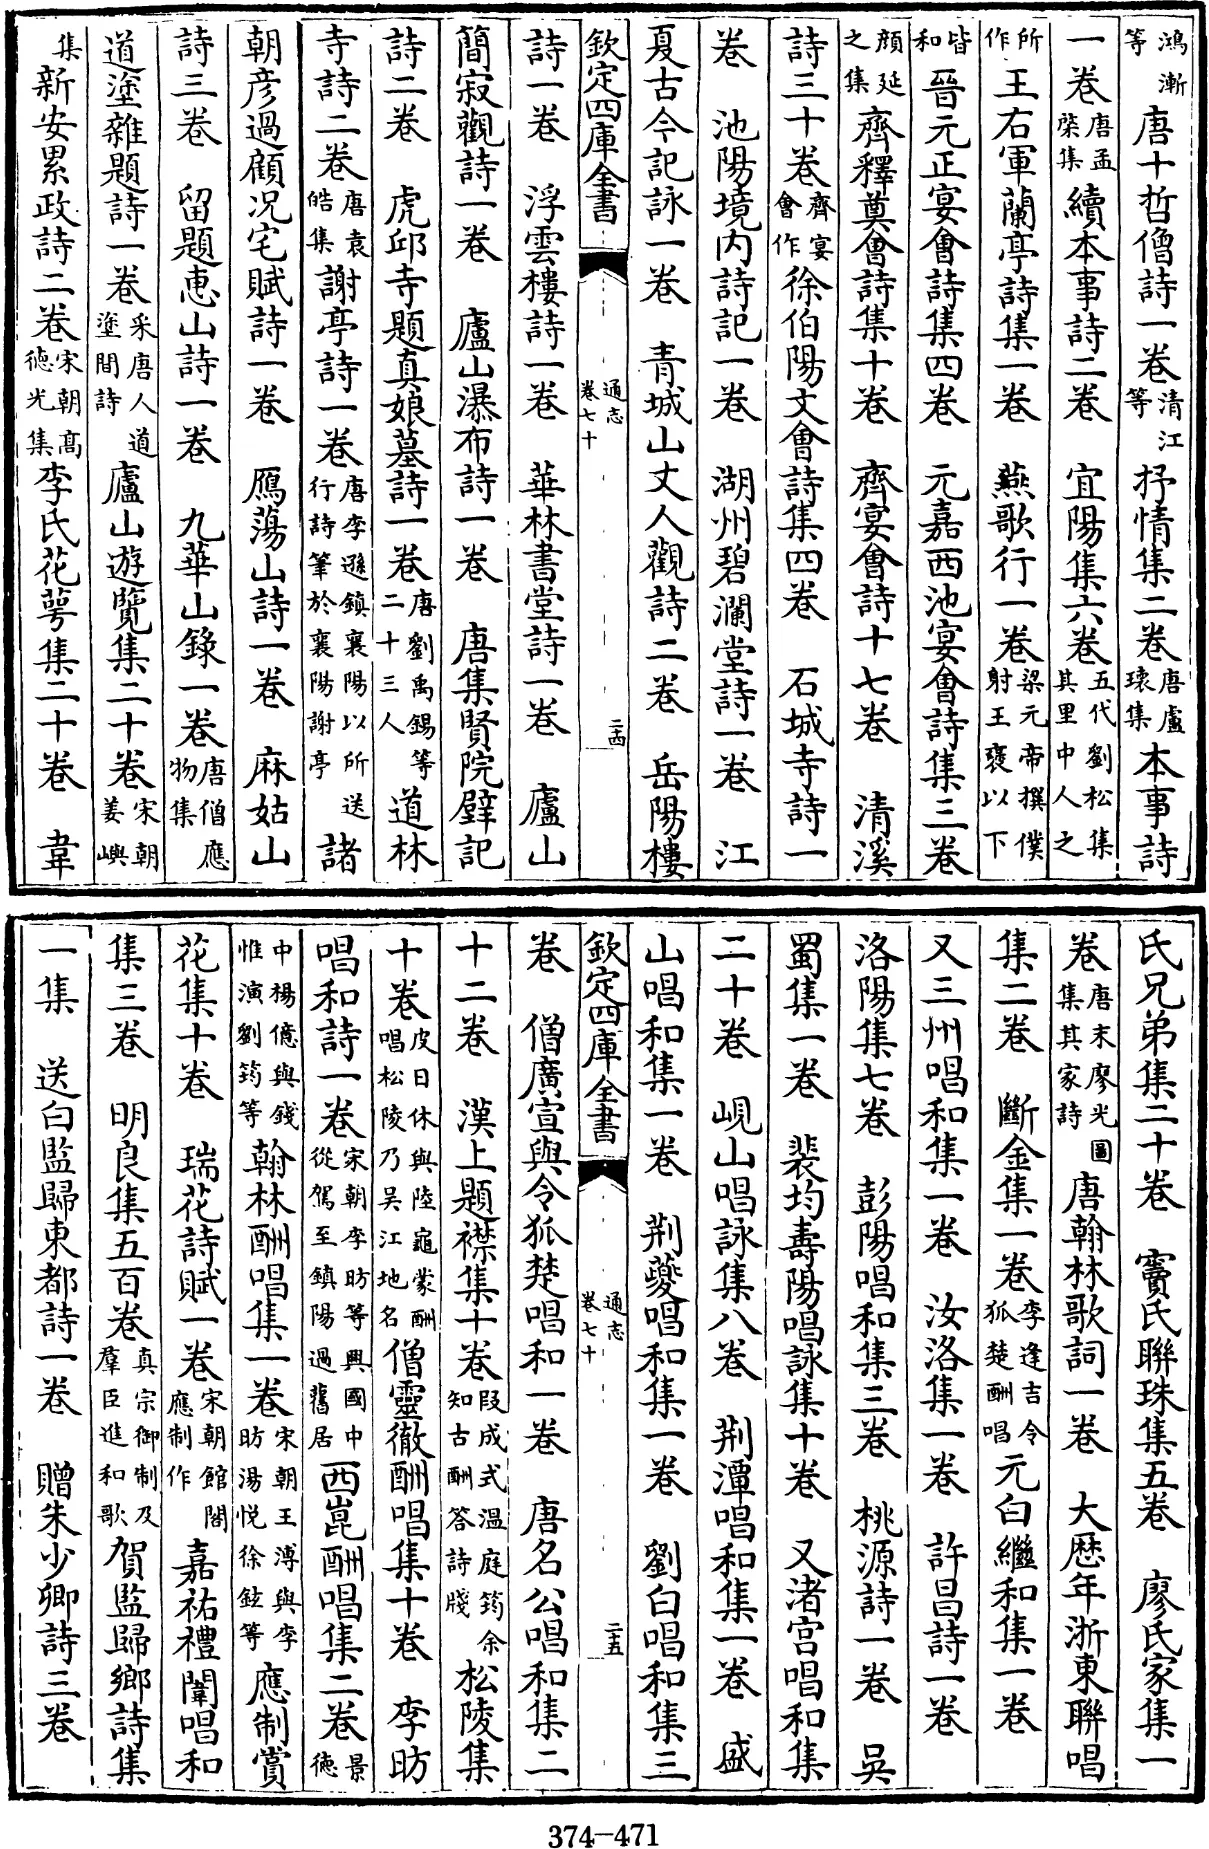 鴻漸等唐十哲僧詩一卷清江等抒情集二卷唐盧瓌集本事詩
一卷唐孟棨集續本事詩二卷　宜陽集六卷五代劉松集其里中人之
所作王右軍蘭亭詩集一卷　燕歌行一卷梁元帝撰僕射王褒以下
皆和晉元正宴會詩集四卷　元嘉西池宴會詩集三卷
顔延之集齊釋奠會詩集十卷　齊宴會詩十七卷　清溪
詩三十卷齊宴會作徐伯陽文會詩集四卷　石城寺詩一
卷　池陽境内詩記一卷　湖州碧瀾堂詩一卷　江
夏古今記詠一卷　青城山丈人觀詩二卷　岳陽樓
欽定四庫全書　通志卷七十　二十四
詩一卷　浮雲樓詩一卷　華林書堂詩一卷　廬山
簡寂觀詩一卷　廬山瀑布詩一卷　唐集賢院壁記
詩二卷　虎邱寺題真娘墓詩一卷唐劉禹錫等二十三人道林
寺詩二卷唐袁皓集謝亭詩一卷唐李遜鎮襄陽以所送行詩筆於襄陽謝亭諸
朝彦過顧况宅賦詩一卷　鴈蕩山詩一卷　麻姑山
詩三卷　留題惠山詩一卷　九華山錄一卷唐僧應物集
道塗雜題詩一卷采唐人道塗間詩廬山遊覽集二十卷宋朝姜嶼
集新安累政詩二卷宋朝髙德光集李氏花萼集二十卷　韋
氏兄弟集二十卷　竇氏聯珠集五卷　廖氏家集一
卷唐末廖光圖集其家詩唐翰林歌詞一卷　大歴年浙東聯唱
集二卷　斷金集一卷李逢吉令狐楚酬唱元白繼和集一卷
又三州唱和集一卷　汝洛集一卷　許昌詩一卷
洛陽集七卷　彭陽唱和集三卷　桃源詩一卷　吳
蜀集一卷　裴均壽陽唱詠集十卷　又渚宫唱和集
二十卷　峴山唱詠集八卷　荆潭唱和集一卷　盛
山唱和集一卷　荆夔唱和集一卷　劉白唱和集三
欽定四庫全書　通志卷七十　二十五
卷　僧廣宣與令狐楚唱和一卷　唐名公唱和集二
十二卷　漢上題襟集十卷段成式溫庭筠余知古酬答詩牋松陵集
十卷皮日休與陸龜蒙酬唱松陵乃吴江地名僧靈徹酬唱集十卷　李昉
唱和詩一卷宋朝李昉等興國中從駕至鎮陽過舊居西崑酬唱集二卷景德
中楊億與錢惟演劉筠等翰林酬唱集一卷宋朝王溥與李昉湯悦徐鉉等應制賞
花集十卷　瑞花詩賦一卷宋朝館閣應制作　嘉祐禮闈唱和
集三卷　明良集五百卷真宗御制及羣臣進和歌賀監歸鄉詩集
一集　送白監歸東都詩一卷　贈朱少卿詩三卷
374-471